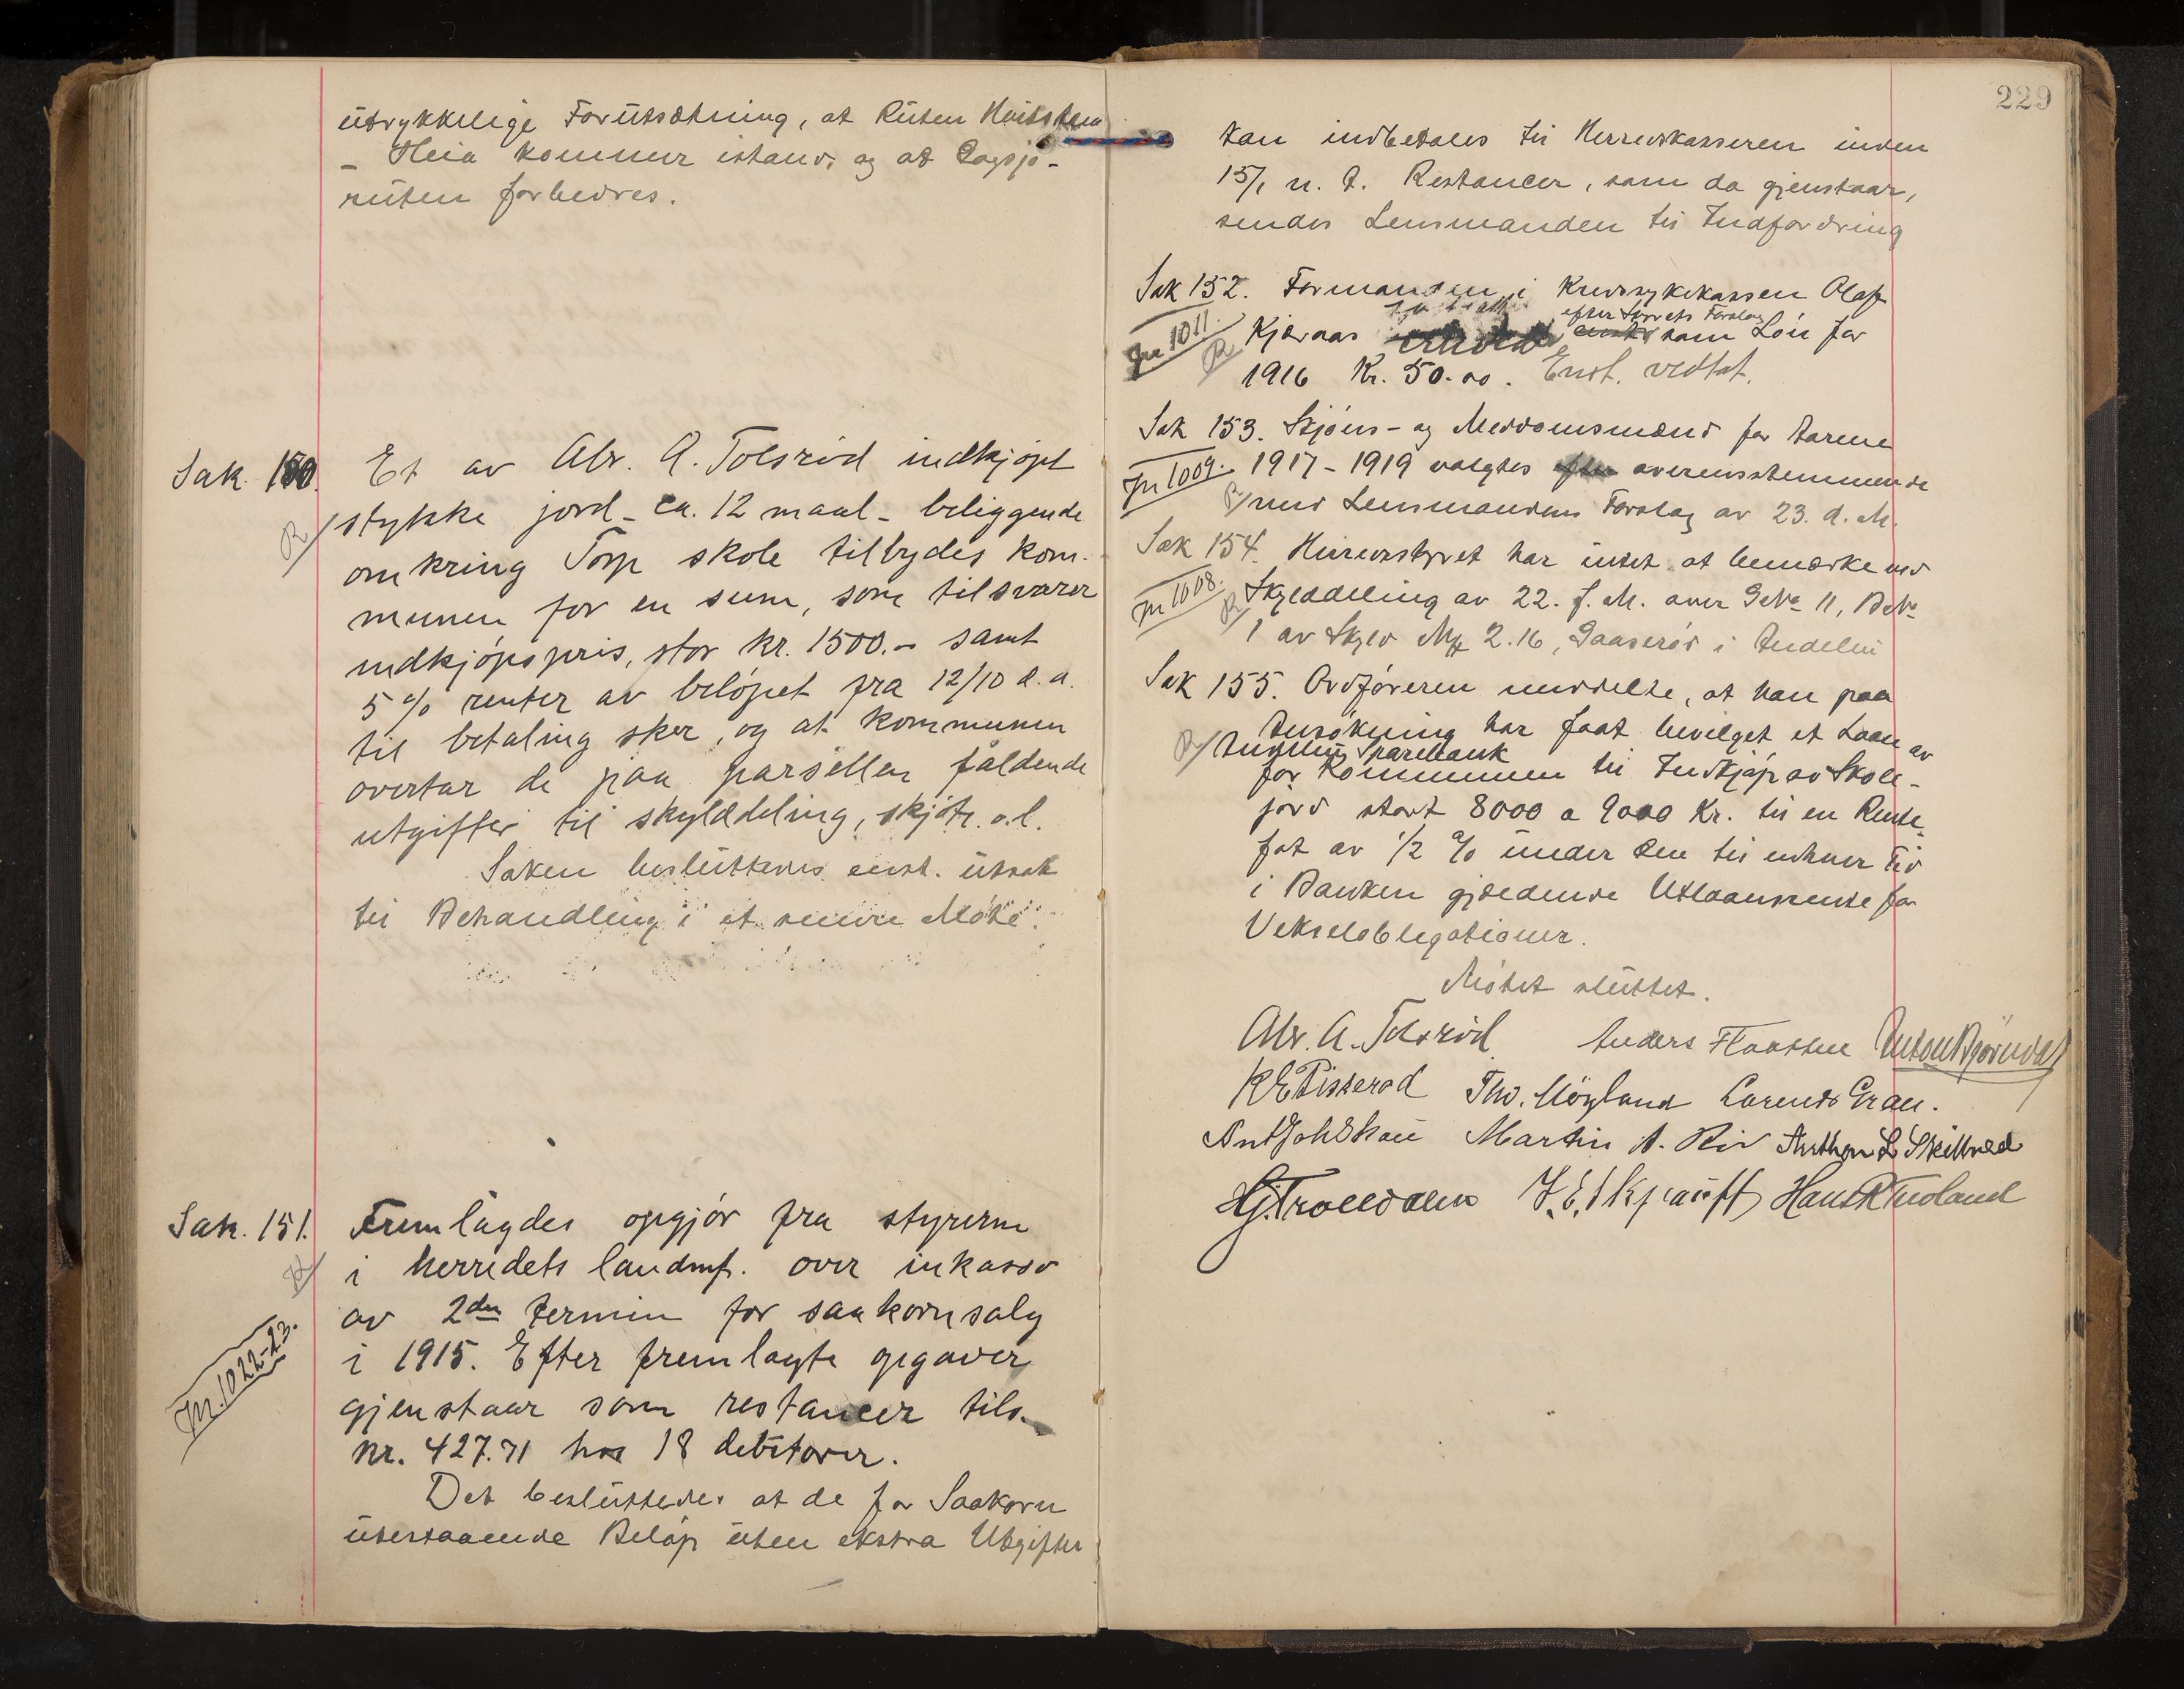 utrykkelige Forutsætning, at Ruten Hvitsten
- Heia kommer istand, og at Dagsjø-
ruten forbedres.
Sak. 150. Et av Abr. A. Tolsrød indkjøpt
R/ stykke jord - ca. 12 maal - beliggende
omkring Torp skole tilbydes kom-
munen for en sum, som tilsvarer
indkjøpspris, stor kr. 1500.- samt
5 % renter av beløpet fra 12/10 d.a.
til betaling sker, og at kommunen
overtar de paa parsellen faldende
utgifter til skylddeling, skjøte o.l.
Saken besluttedes enst. utsat
til Behandling i et senere Møte.
Sak. 151. Fremlagdes opgjør fra styrerne
i herredets landmf. over inkasso
av 2den termin for saakornsalg
Jn. 1022-23.
i 1915. Efter fremlagte opgaver
gjenstaar som restancer tils.
kr. 427.71 hos 18 debitorer.
Det besluttedes at de for Saakorn
utestaaende Beløp uten ekstra Utgifter
229
kan indbetales til Herredskasseren inden
15/1 n. A. Restancer, som da gjenstaar,
sendes Lensmanden til Indfordring
Sak 152. Formanden i Kredssykekassen Olaf
efter Styrets Forslag
Jn 1011. R/ Kjøraas som Løn for
1916 Kr. 50.00. Enst. vedtat.
Sak 153. Skjøns- og Meddomsmænd for Aarene
Jn 1009. 1917-1919 valgtes efter overensstemmende
R/ med Lensmandens Forslag av 23. d. M.
Sak 154. Herredsstyret har intet at bemærke ved
Jn 1008. R/ Skylddeling av 22. f. M. over GNo 11, BNo
1 av Skyld Mk 2.16, Gaaserød i Andebu
Sak 155. Ordføreren meddelte, at han paa
Ansøkning har faat bevilget et Laan av
R/ Andebu Sparebank
for Kommunen til Indkjøp av Skole-
jord stort 8000 a 9000 Kr. til en Rente-
fot av 1/2 % under den til enhver Tid
i Banken gjældende Utlaansrente for
Vekselobligationer.
Møtet sluttet.
Abr. A. Tolsrød Anders Flaatten Anton Bjørndal
K E Pisserød Thv. Møyland Lorents Gran.
Ant Joh Skau Martin A. Rid Anthon L Skillrød
HJ. Trolldalen Hans R Tuoland